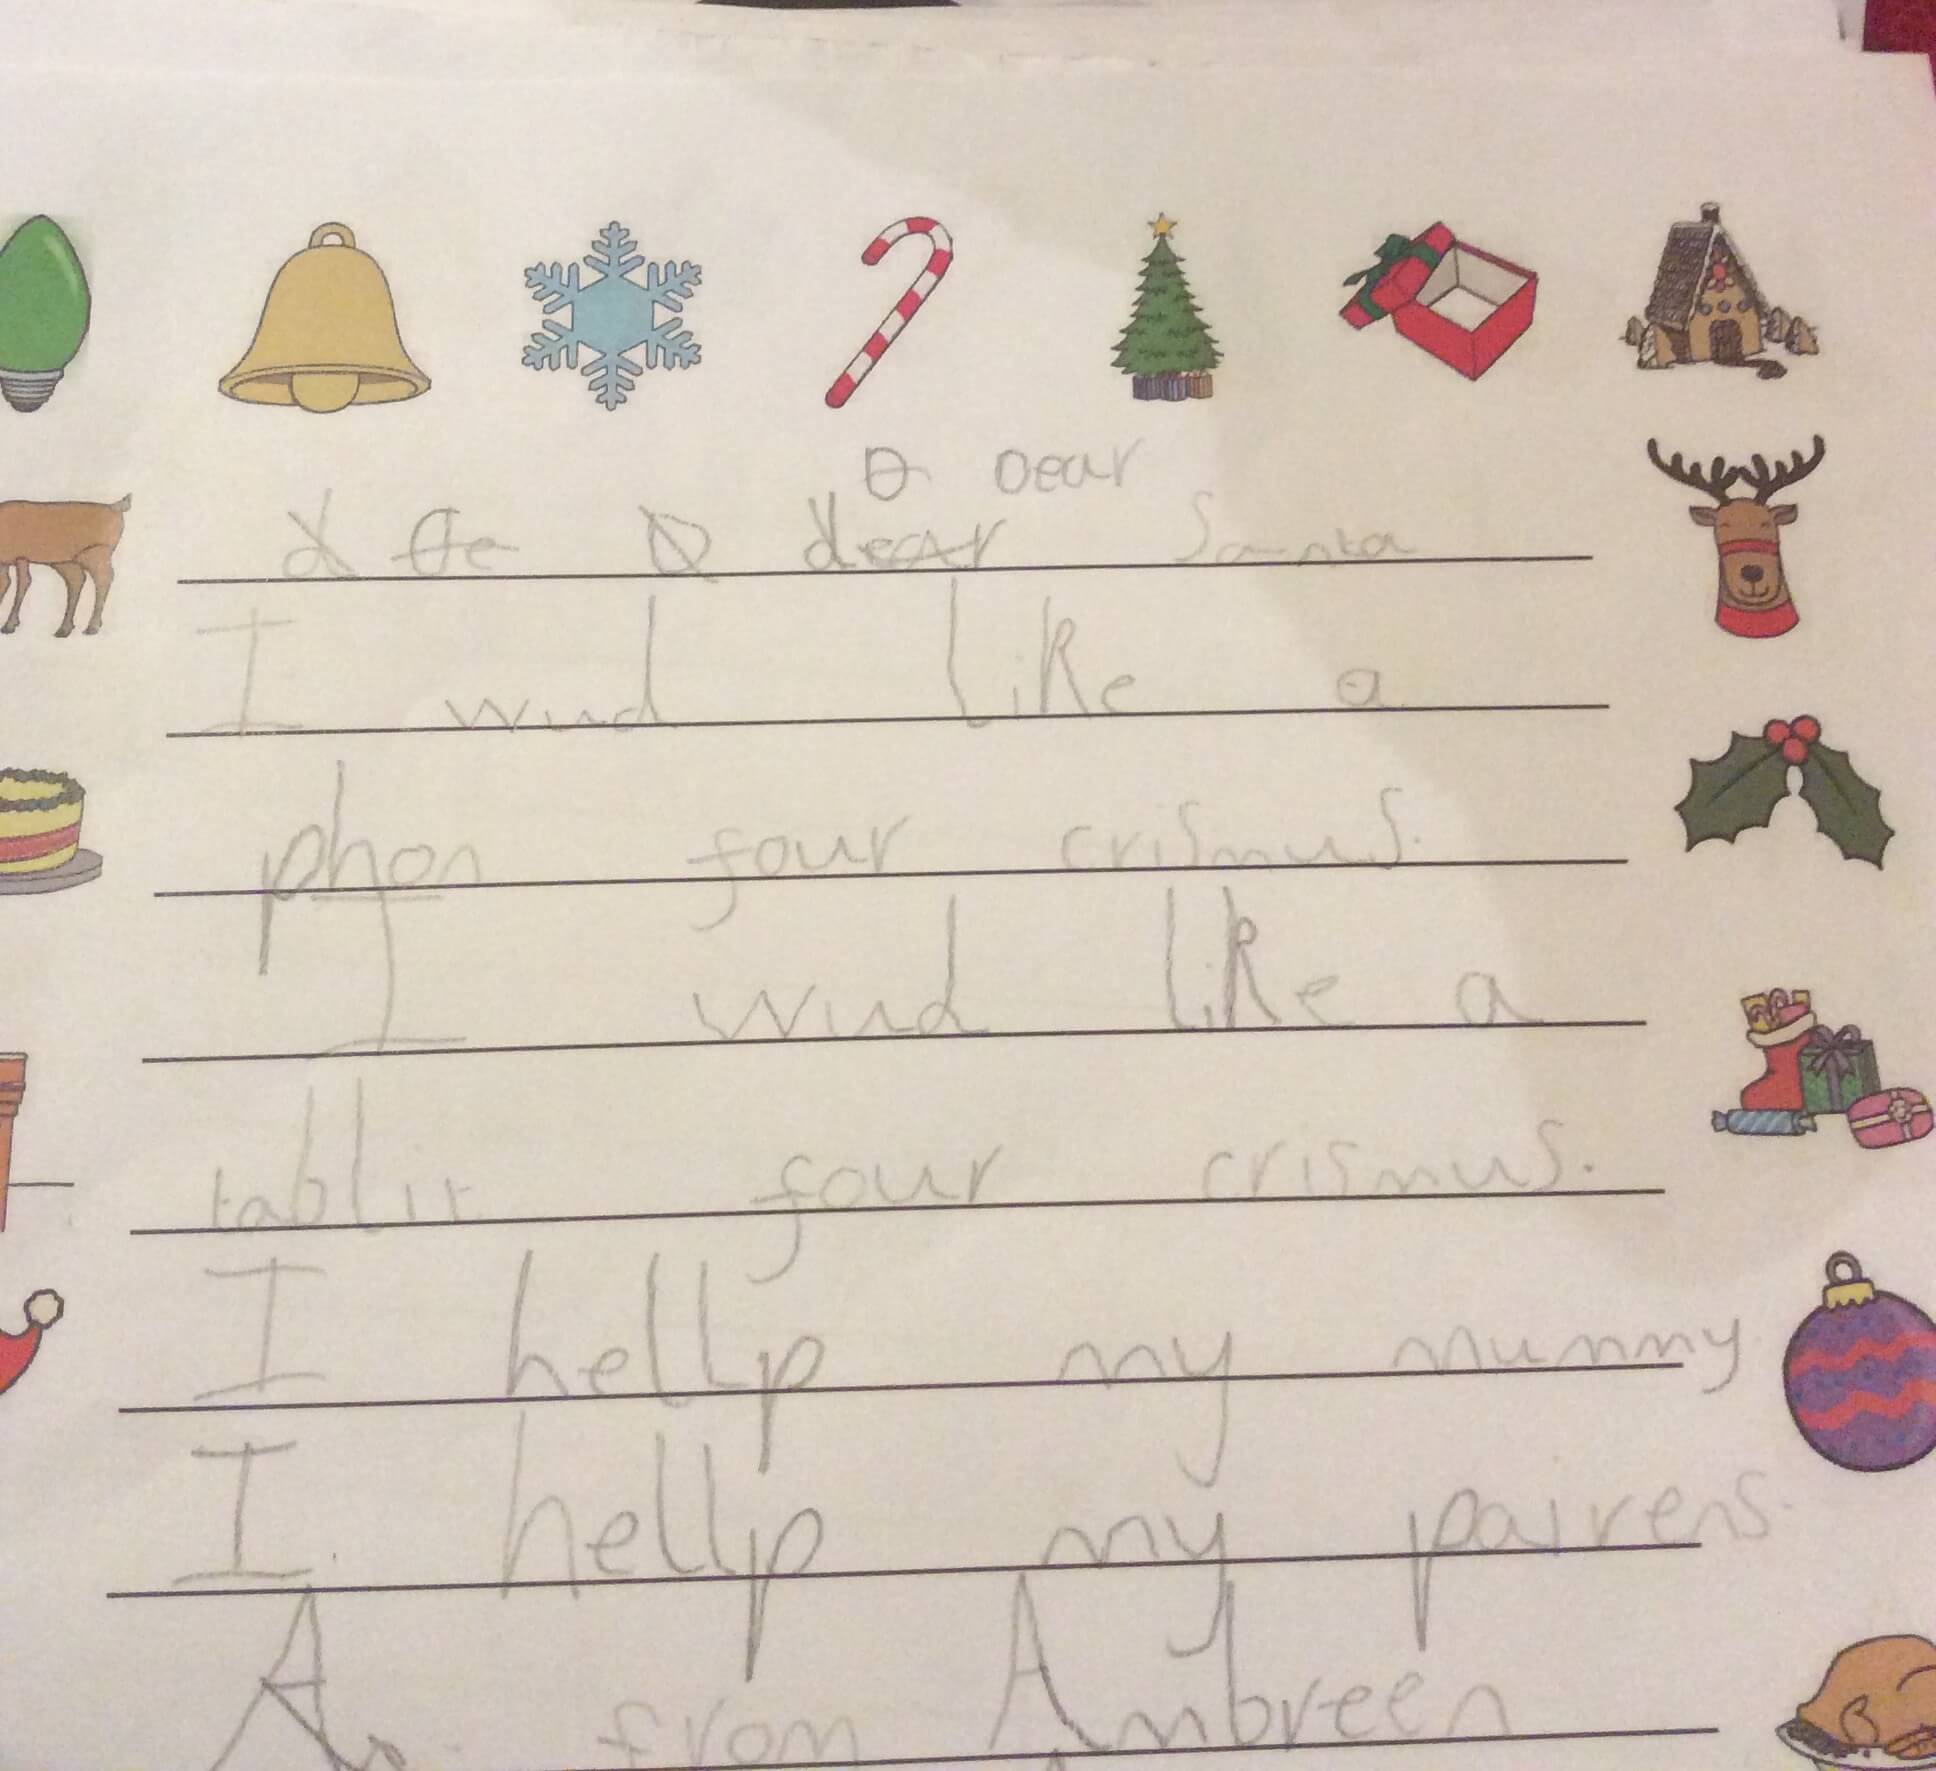 Dear
dear Santa
I wud like a
phon four crismus.
I wud like a
tablit four crismus.
I hellp my mummy
I hellp my pairens.
from Ambreen